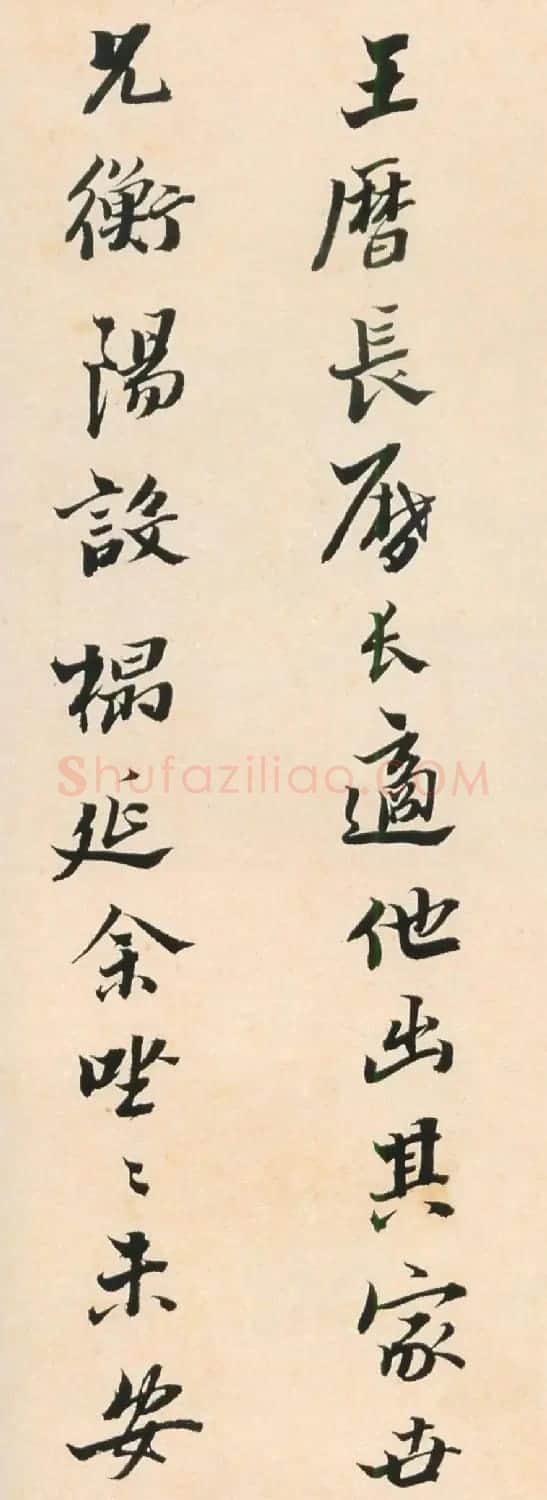 王曆長曆长適他出其家世
兄衡陽設榻延余唑〻未安
Shufaziliao.COM